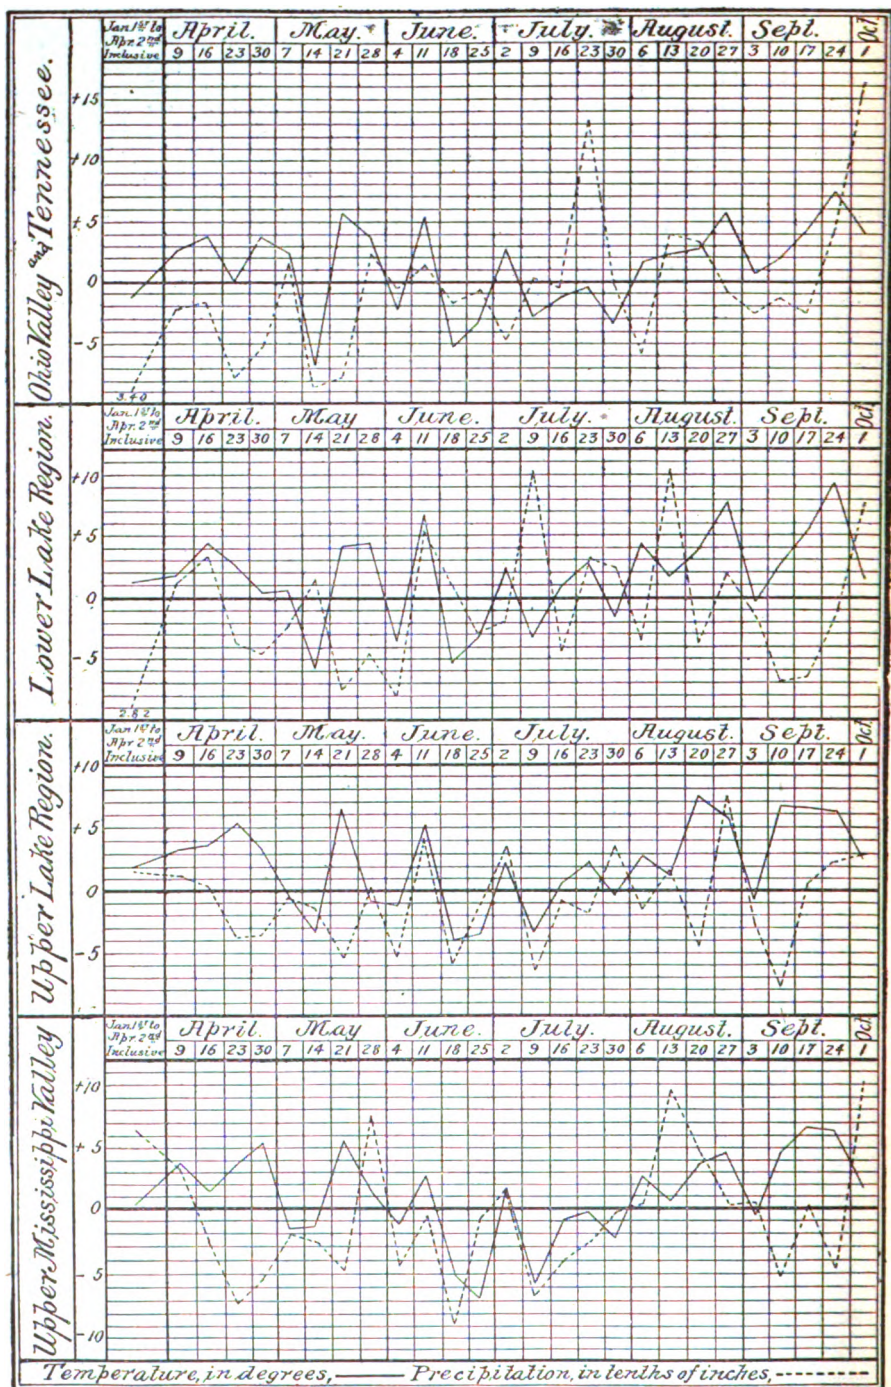 Ohio Valley and Tennessee.
Jan. 1st to Apr. 2nd Inclusive
April. May. June. July. August. Sept. Oct.
9 16 23 30 7 14 21 28 4 11 18 25 2 9 16 23 30 6 13 20 27 3 10 17 24 1
+15
+10
+5
0
-5
3.40
Lower Lake Region.
Jan. 1st to Apr. 2nd Inclusive
April. May June. July. August. Sept. Oct
9 16 23 30 7 14 21 28 4 11 18 25 2 9 16 23 30 6 13 20 27 3 10 17 24 1
+10
+5
0
-5
2.82
Upper Lake Region.
Jan 1st to Apr 2nd Inclusive
April. May. June. July. August. Sept. Oct
9 16 23 30 7 14 21 28 4 11 18 25 2 9 16 23 30 6 13 20 27 3 10 17 24 1
+10
+5
0
-5
Upper Mississippi Valley
Jan 1st to Apr. 2nd Inclusive
April. May June. July. August. Sept. Oct
9 16 23 30 7 14 21 28 4 11 18 25 2 9 16 23 30 6 13 20 27 3 10 17 24 1
+10
+5
0
-5
-10
Temperature, in degrees, Precipitation, in tenths of inches,